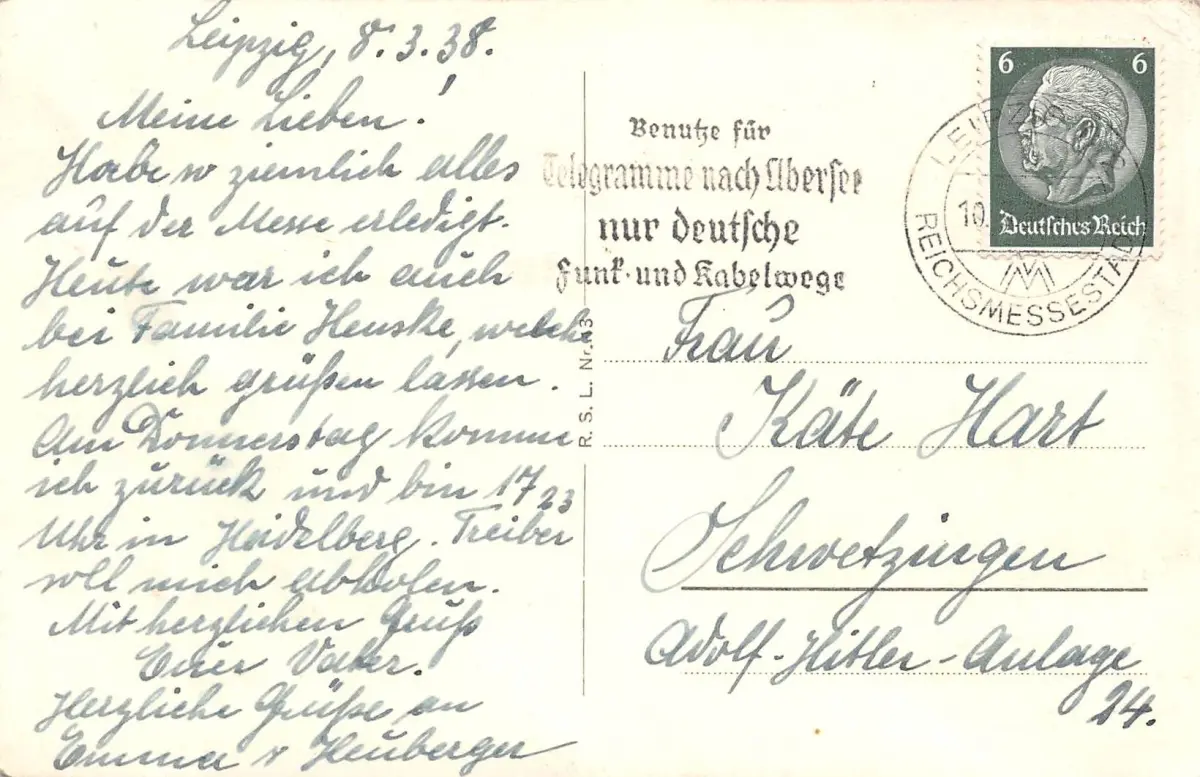 Leipzig, 8.3.38.
Meine Lieben!
Habe so ziemlich alles
auf der Messe erledigt.
Heute war ich auch
bei Familie Henske, welche
herzlich grüßen lassen.
Am Donnerstag komme
ich zurück und bin 17 23
Uhr in Heidelberg. Treiber
soll mich abholen.
Mit herzlichen Gruß
Euer Vater.
Herzliche Grüße an
Emma u Heuberger
R. S. L. Nr. N3
Benutze für
Telegramme nach Übersee
nur deutsche
Funk- und Kabelwege
6 6
Deutsches Reich
LEIPZIG
10.
REICHSMESSESTADT
Frau
Käte Hart
Schwetzingen
Adolf-Hitler-Anlage
24.